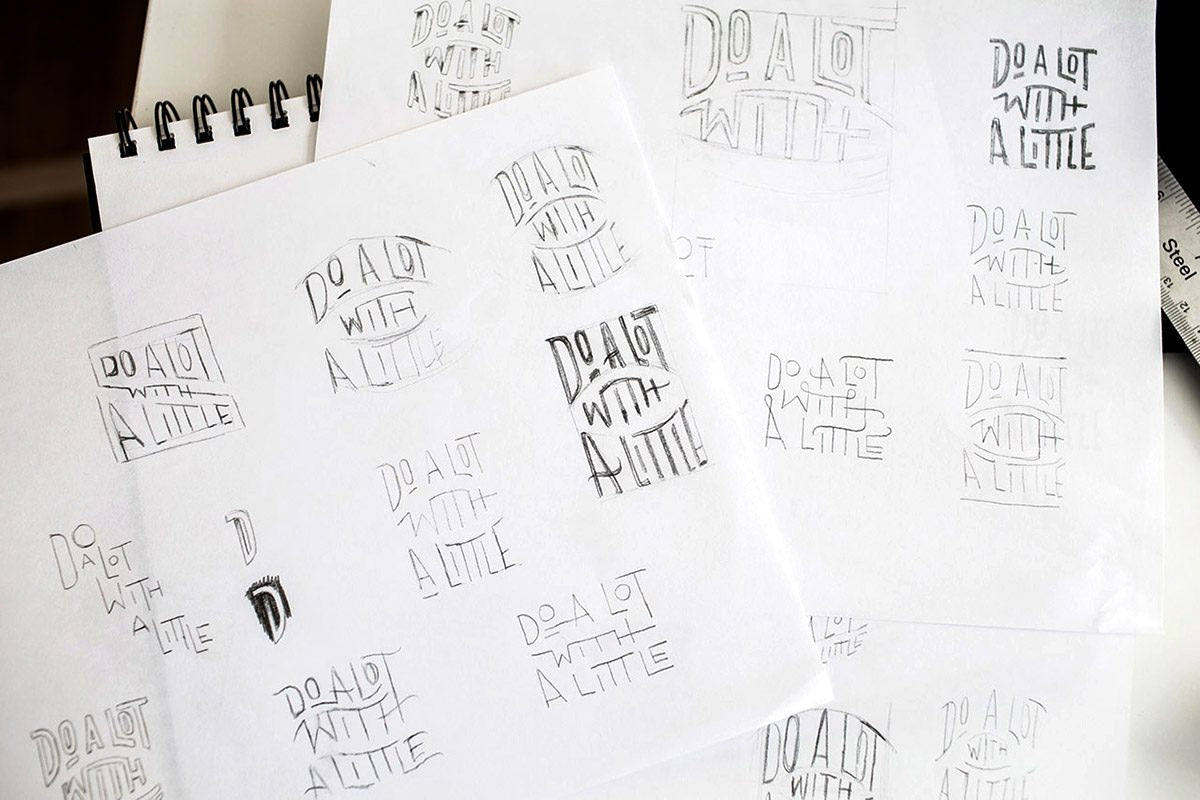 DO A LOT
WITH
A LITTLE
DO A LOT
WITH
DO A LOT
WITH
A LITTLE
DO A LOT
WITH
A LITTLE
DO A LOT
WITH
A LITTLE
DO A LOT
WITH
A LITTLE
DO A LOT
WITH
A LITTLE
Steel
13
12
DO A LOT
WITH
A LITTLE
DO A LOT
WITH
A LITTLE
DO A LOT
WITH
A LITTLE
DO A LOT
WITH
A LITTLE
DO A LOT
WITH
A LITTLE
DO
A LOT
WITH
A LITTLE
D
D
DO A LOT
WITH
A LITTLE
DO A LOT
WITH
A LITTLE
DO A LOT
WITH
DO A LOT
WITH
DO A LOT
WITH
A LITTLE